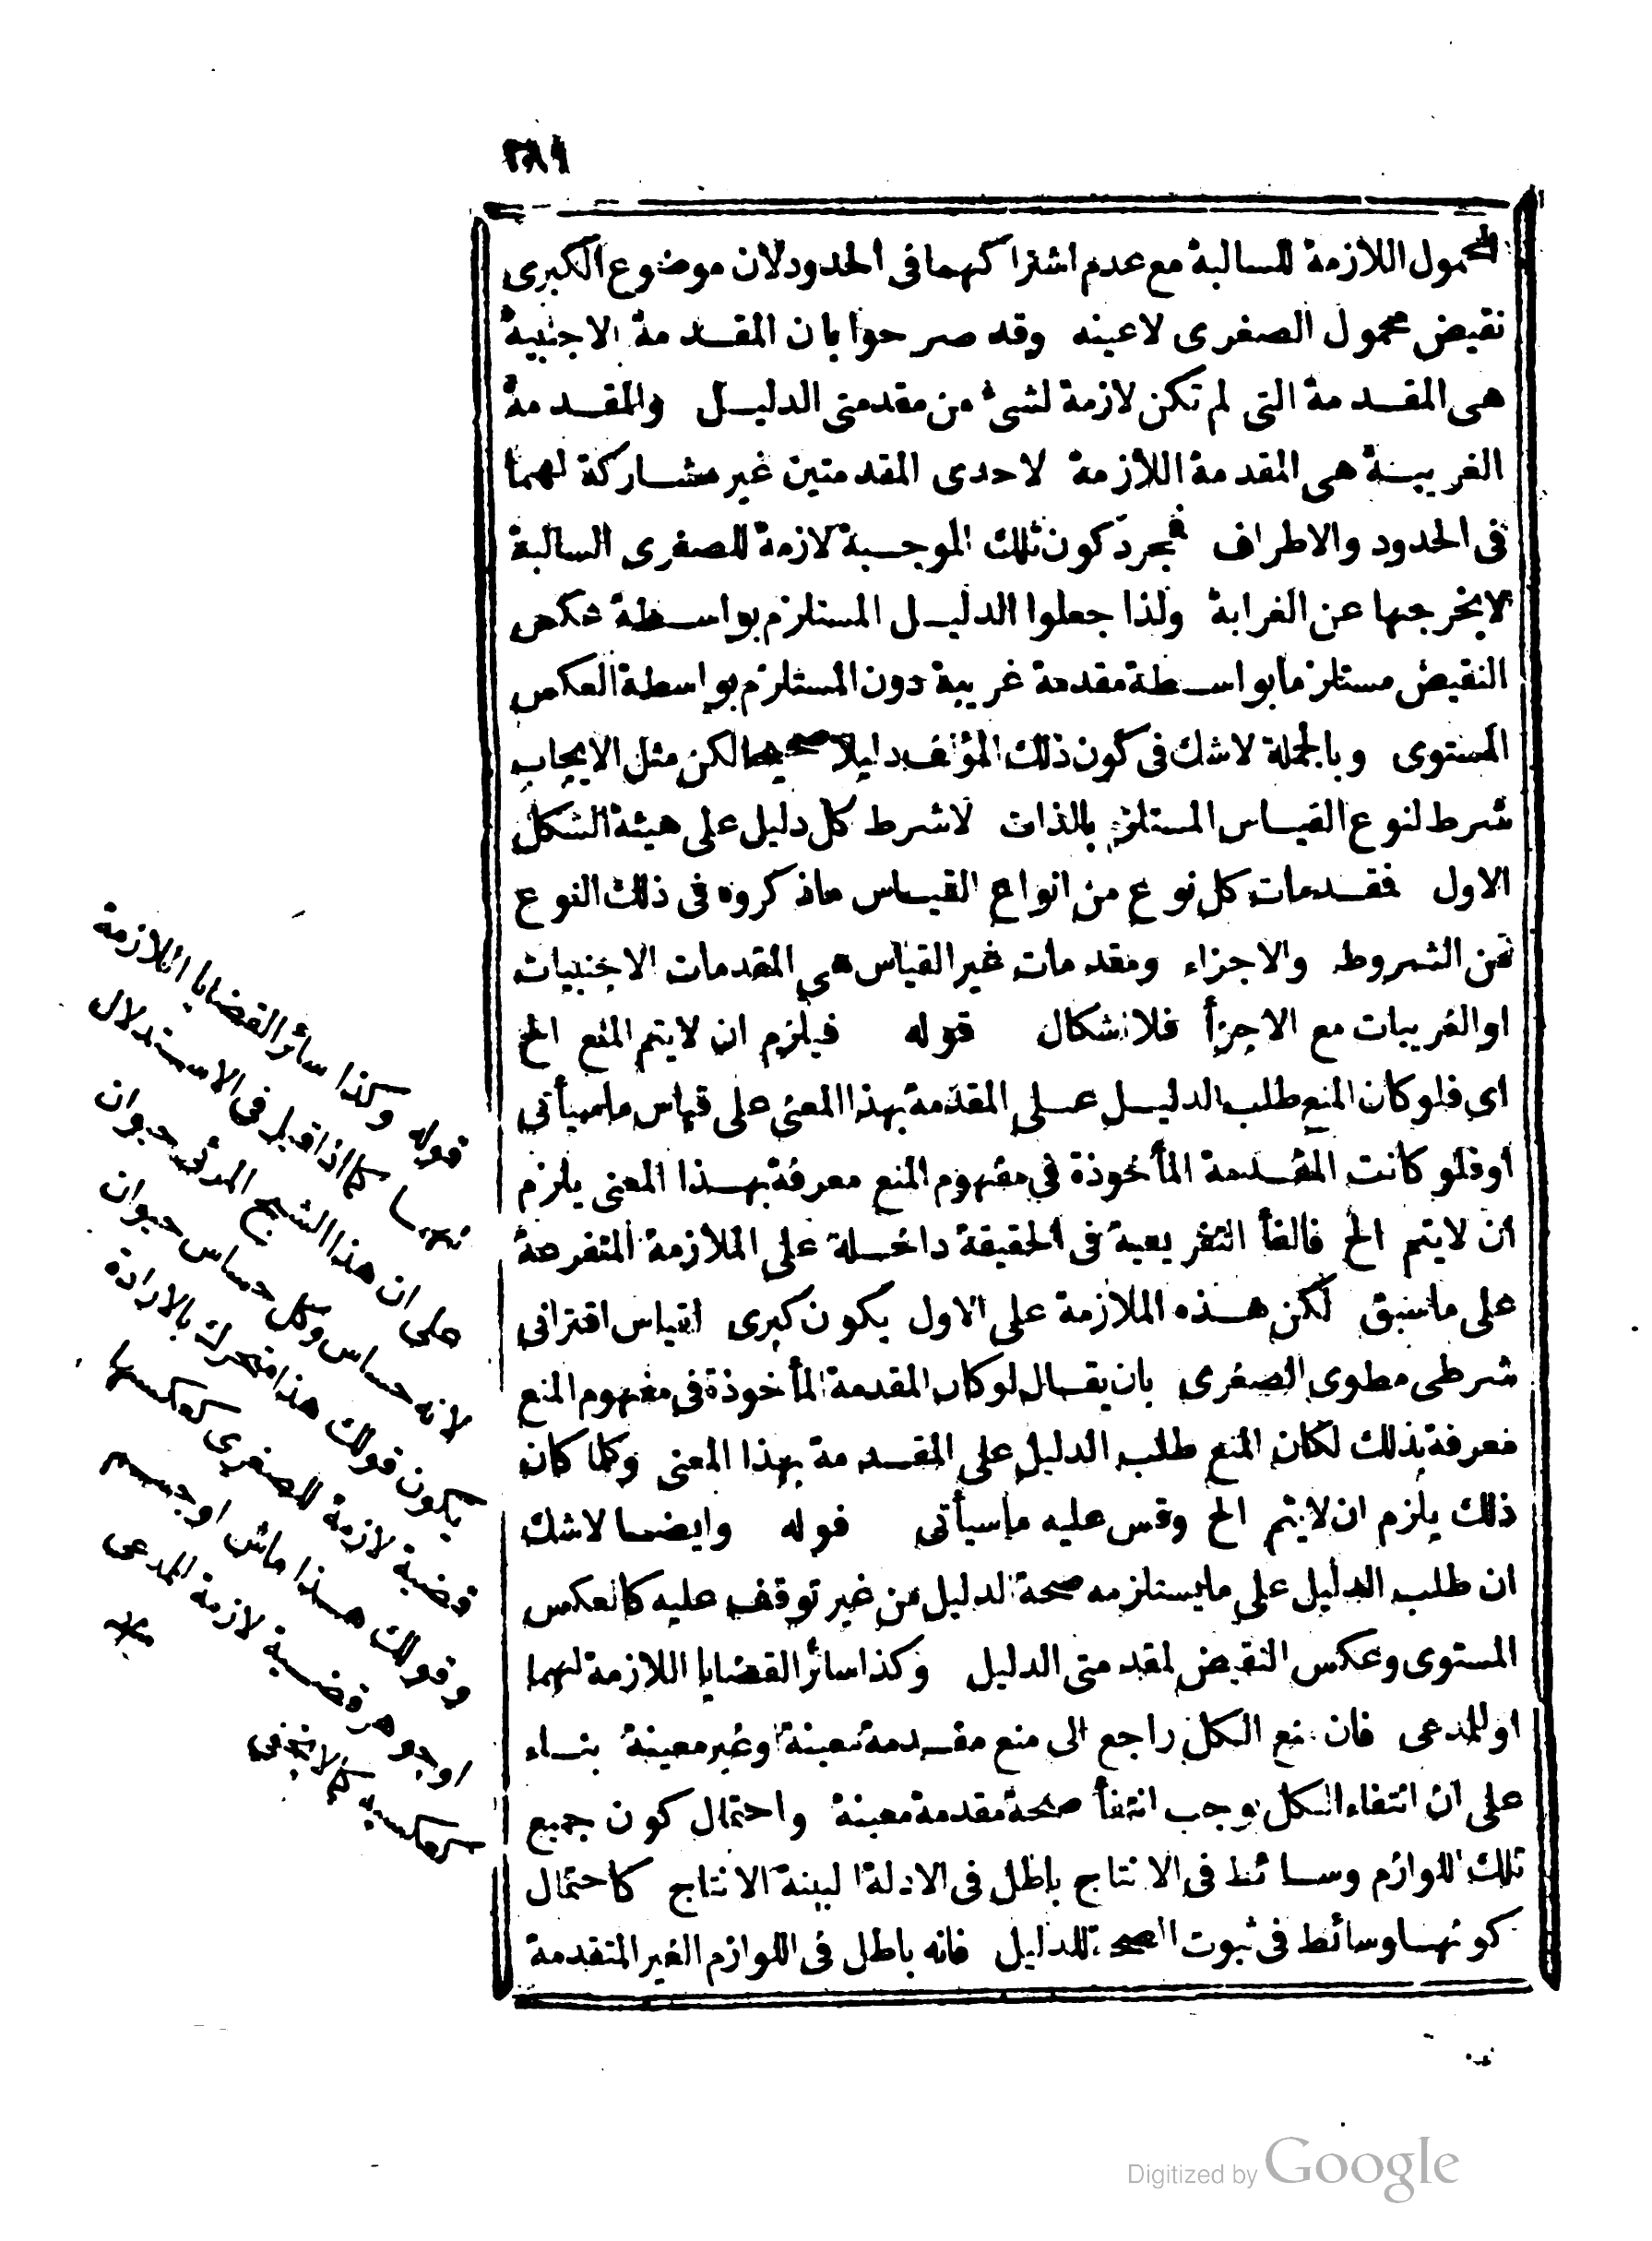 ٢٨٩
المحمول اللازمة للسالبة مع عدم اشتراكهما فى الحدود لان موضوع الكبرى
نقيض محمول الصغرى لاعينه وقد صرحوا بان المقدمة الاجنبية
هى المقدمة التى لم تكن لازمة لشئ من مقدمتى الدليل والمقدمة
الغريبة هى المقدمة اللازمة لاحدى المقدمتين غير مشاركة لهما
فى الحدود والاطراف فمجرد كون تلك الموجبة لازمة للصغرى السالبة
لايخرجها عن الغرابة ولذا جعلوا الدليل المستلزم بواسطة عكس
النقيض مستلزما بواسطة مقدمة غريبة دون المستلزم بواسطة العكس
المستوى وبالجملة لاشك فى كون ذلك المؤلف دليلا صحيحا لكن مثل الايجاب
شرط لنوع القياس المستلزم بالذات لاشرط كل دليل على هيئة الشكل
الاول فمقدمات كل نوع من انواع القياس ماذكروه فى ذلك النوع
من الشروط والاجزاء ومقدمات غير القياس هى المقدمات الاجنبيات
او الغريبات مع الاجزأ فلا اشكال قوله فيلزم ان لايتم المنع الخ
اى فلو كان المنع طلب الدليل على المقدمة بهذا المعنى على قياس ماسيأتى
او فلو كانت المقدمة المأخوذة فى مفهوم المنع معرفة بهذا المعنى يلزم
ان لايتم الخ فالفأ التفريعية فى الحقيقة داخلة على الملازمة المتفرعة
على ماسبق لكن هذه الملازمة على الاول يكون كبرى لقياس اقترانى
شرطى مطوى الصغرى بان يقال لو كان المقدمة المأخوذة فى مفهوم المنع
معرفة بذلك لكان المنع طلب الدليل على المقدمة بهذا المعنى وكلما كان
ذلك يلزم ان لايتم الخ وقس عليه ماسيأتى قوله وايضا لاشك
ان طلب الدليل على مايستلزمه صحة الدليل من غير توقف عليه كالعكس
المستوى وعكس النقيض لمقدمتى الدليل وكذا سائر القضايا اللازمة لهما
او للمدعى فان منع الكل راجع الى منع مقدمة معينة او غير معينة بناء
على ان انتفاء الكل يوجب انتفأ صحة مقدمة معينة واحتمال كون جميع
تلك اللوازم وسائط فى الانتاج باطل فى الادلة البينة الانتاج كاحتمال
كونها وسائط فى ثبوت الصحة للدليل فانه باطل فى اللوازم الغير المتقدمة
قوله وكذا سائر القضايا اللازمة
لهما كما اذا قيل فى الاستدلال
على ان هذا الشبح المرئى حيوان
لانه حساس وكل حساس حيوان
يكون قولك هذا متحرك بالارادة
قضية لازمة للصغرى كعكسها
وقولك هذا ماش او جسم
او جوهر قضية لازمة للمدعى
كعكسه كما لايخفى
منه
Digitized by Google